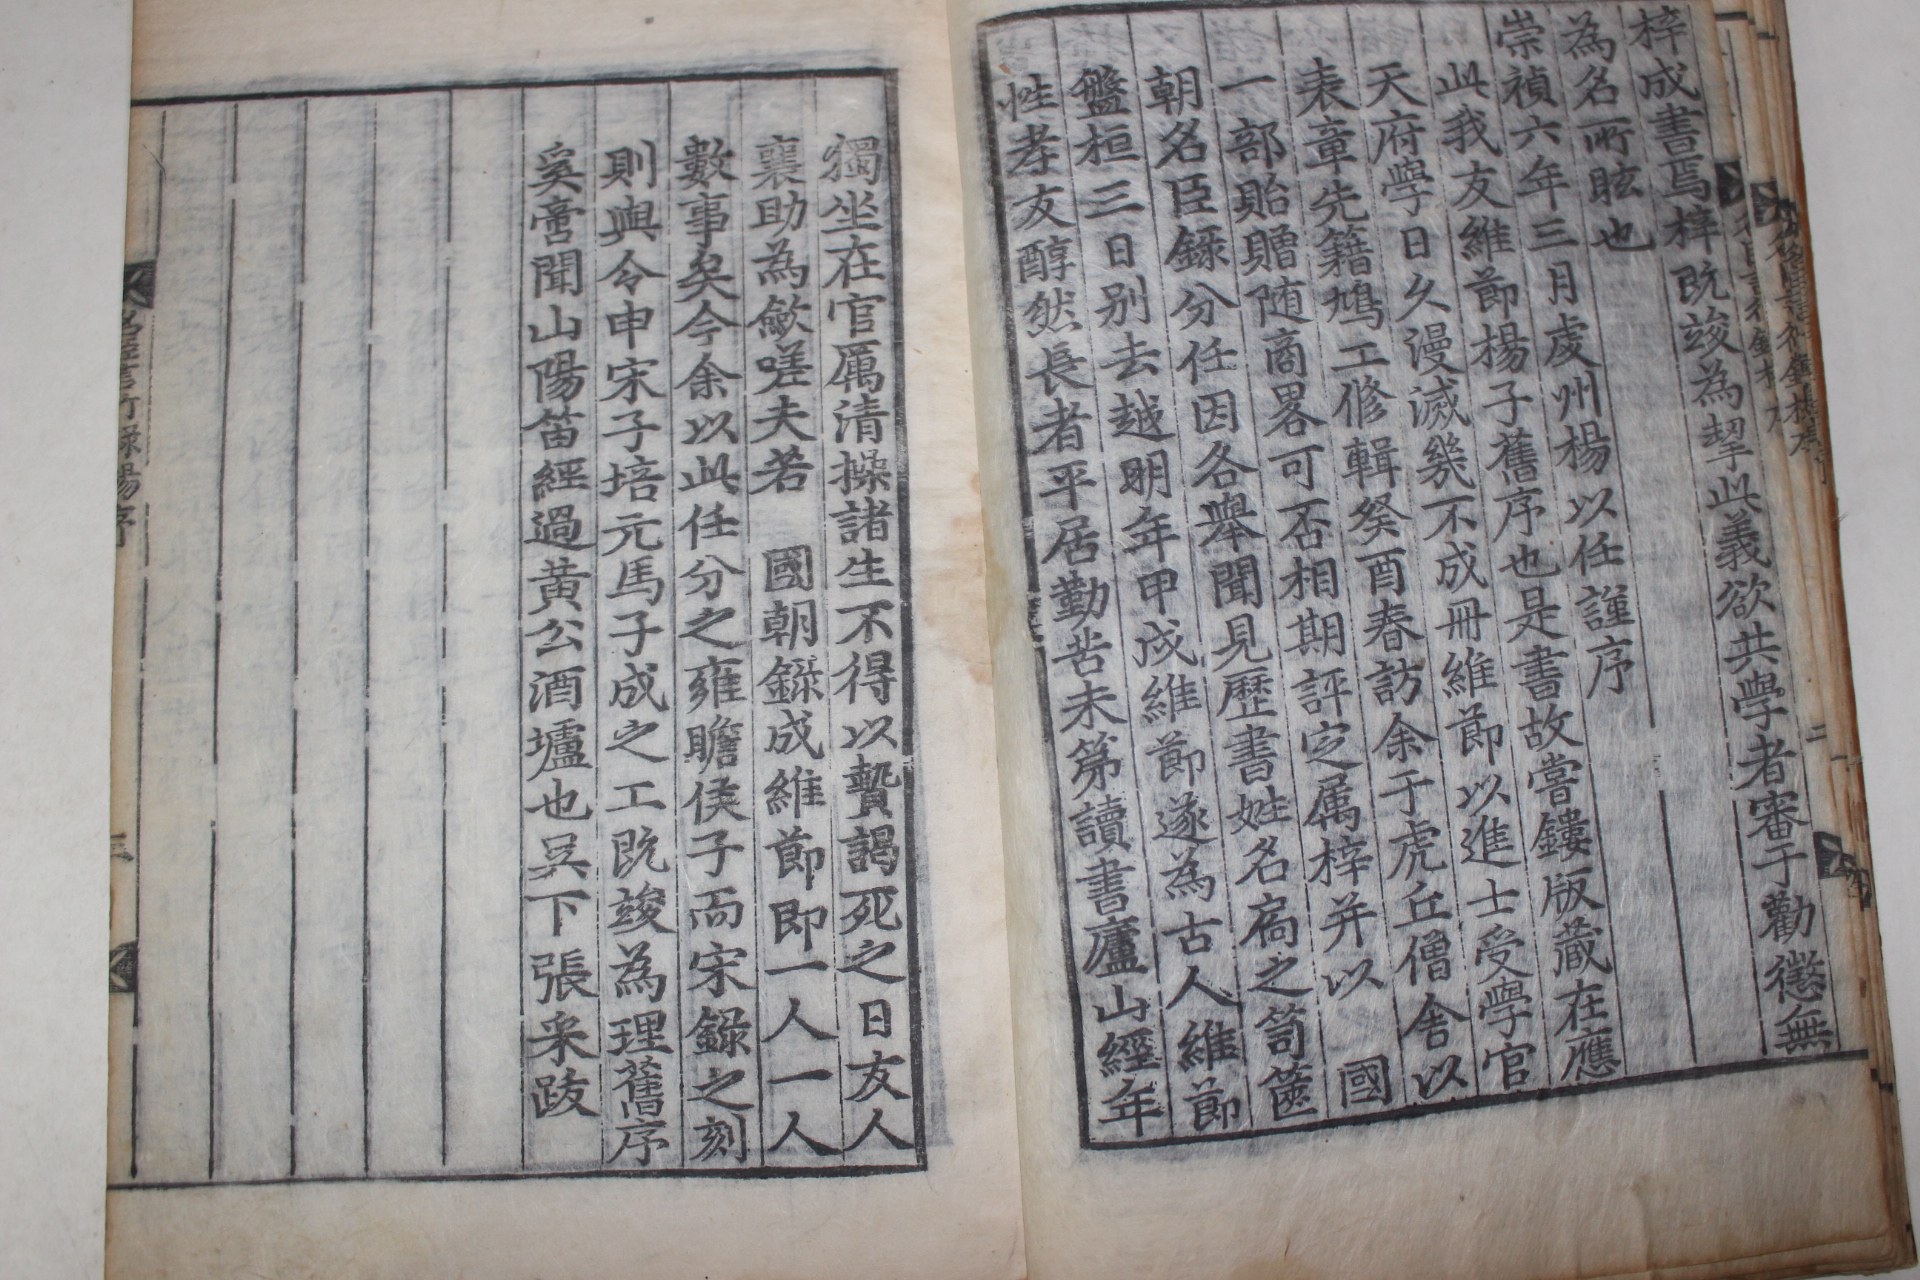 梓成書焉梓既竣為挈此義欲共學者審于勸懲無
為名所眩也
崇禎六年三月虔州楊以任謹序
此我友維節楊子舊序也是書故嘗鏤版藏在應
天府學日久漫滅幾不成冊維節以進士受學官
表章先籍鳩工修輯癸酉春訪余于虎丘僧舍以
一部貽贈随商畧可否相期評定属梓并以 國
朝名臣録分任因各舉聞見歷書姓名扃之笥篋
盤桓三日别去越明年甲戌維節遂為古人維節
性孝友醇然長者平居勤苦未第讀書廬山經年
獨坐在官厲清操諸生不得以贄謁死之日友人
襄助為斂嗟夫若 國朝錄成維節即一人一人
數事矣今余以此任分之雍瞻侯子而宋録之刻
則與令申宋子培元馬子成之工既竣為理舊序
奚啻聞山陽笛經過黄公酒壚也吳下張采跋
名臣言行録楊序
三
二